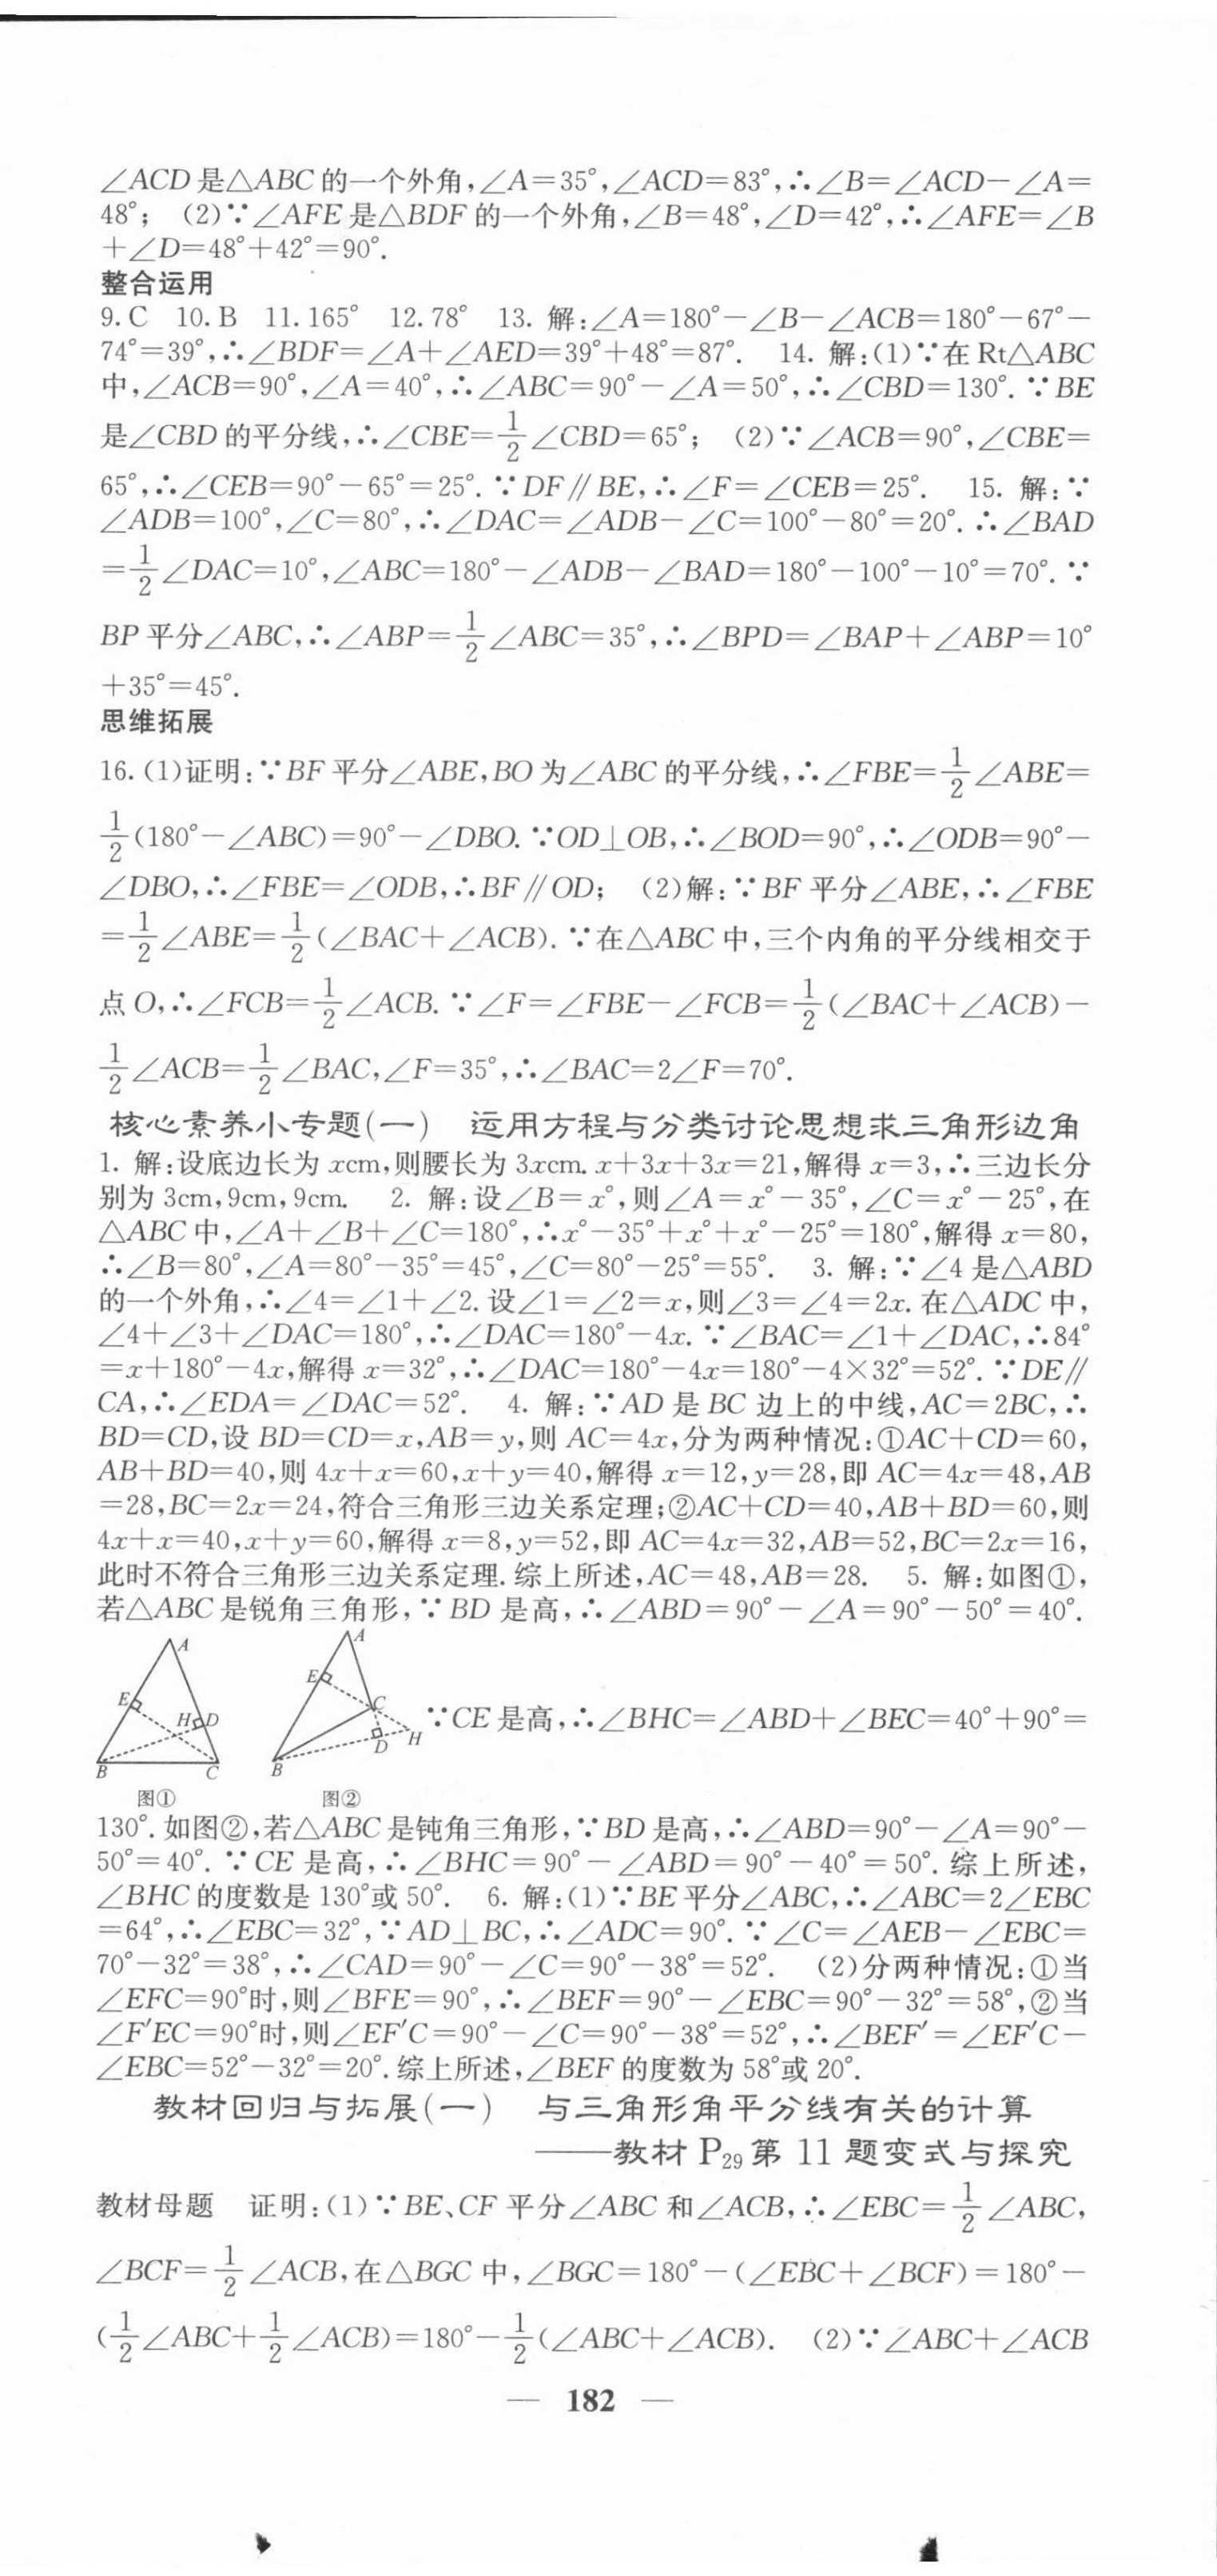 ∠ACD是△ABC的一个外角,∠A=35°,∠ACD=83°,∴∠B=∠ACD-∠A=
48°; (2)∵∠AFE是△BDF的一个外角,∠B=48°,∠D=42°,∴∠AFE=∠B
+∠D=48°+42°=90°.
整合运用
9.C 10.B 11.165° 12.78° 13. 解:∠A=180°-∠B-∠ACB=180°-67°-
74°=39°,∴∠BDF=∠A+∠AED=39°+48°=87°. 14. 解:(1)∵在Rt△ABC
中,∠ACB=90°,∠A=40°,∴∠ABC=90°-∠A=50°,∴∠CBD=130°.∵BE
是∠CBD的平分线,∴∠CBE=1/2∠CBD=65°; (2)∵∠ACB=90°,∠CBE=
65°,∴∠CEB=90°-65°=25°.∵DF∥BE,∴∠F=∠CEB=25°. 15. 解:∵
∠ADB=100°,∠C=80°,∴∠DAC=∠ADB-∠C=100°-80°=20°.∴∠BAD
=1/2∠DAC=10°,∠ABC=180°-∠ADB-∠BAD=180°-100°-10°=70°.∵
BP平分∠ABC,∴∠ABP=1/2∠ABC=35°,∴∠BPD=∠BAP+∠ABP=10°
+35°=45°.
思维拓展
16.(1)证明:∵BF平分∠ABE,BO为∠ABC的平分线,∴∠FBE=1/2∠ABE=
1/2(180°-∠ABC)=90°-∠DBO.∵OD⊥OB,∴∠BOD=90°,∴∠ODB=90°-
∠DBO,∴∠FBE=∠ODB,∴BF∥OD; (2)解:∵BF平分∠ABE,∴∠FBE
=1/2∠ABE=1/2(∠BAC+∠ACB).∵在△ABC中,三个内角的平分线相交于
点O,∴∠FCB=1/2∠ACB.∵∠F=∠FBE-∠FCB=1/2(∠BAC+∠ACB)-
1/2∠ACB=1/2∠BAC,∠F=35°,∴∠BAC=2∠F=70°.
核心素养小专题(一) 运用方程与分类讨论思想求三角形边角
1. 解:设底边长为xcm,则腰长为3xcm.x+3x+3x=21,解得x=3,∴三边长分
别为3cm,9cm,9cm. 2. 解:设∠B=x°,则∠A=x°-35°,∠C=x°-25°,在
△ABC中,∠A+∠B+∠C=180°,∴x°-35°+x°+x°-25°=180°,解得x=80,
∴∠B=80°,∠A=80°-35°=45°,∠C=80°-25°=55°. 3. 解:∵∠4是△ABD
的一个外角,∴∠4=∠1+∠2.设∠1=∠2=x,则∠3=∠4=2x.在△ADC中,
∠4+∠3+∠DAC=180°,∴∠DAC=180°-4x.∵∠BAC=∠1+∠DAC,∴84°
=x+180°-4x,解得x=32°,∴∠DAC=180°-4x=180°-4×32°=52°.∵DE∥
CA,∴∠EDA=∠DAC=52°. 4. 解:∵AD是BC边上的中线,AC=2BC,∴
BD=CD,设BD=CD=x,AB=y,则AC=4x,分为两种情况:①AC+CD=60,
AB+BD=40,则4x+x=60,x+y=40,解得x=12,y=28,即AC=4x=48,AB
=28,BC=2x=24,符合三角形三边关系定理;②AC+CD=40,AB+BD=60,则
4x+x=40,x+y=60,解得x=8,y=52,即AC=4x=32,AB=52,BC=2x=16,
此时不符合三角形三边关系定理.综上所述,AC=48,AB=28. 5. 解:如图①,
若△ABC是锐角三角形,∵BD是高,∴∠ABD=90°-∠A=90°-50°=40°.
A
E
H D
B C
图①
A
E
C
D H
B
图②
∵CE是高,∴∠BHC=∠ABD+∠BEC=40°+90°=
130°.如图②,若△ABC是钝角三角形,∵BD是高,∴∠ABD=90°-∠A=90°-
50°=40°.∵CE是高,∴∠BHC=90°-∠ABD=90°-40°=50°.综上所述,
∠BHC的度数是130°或50°. 6. 解:(1)∵BE平分∠ABC,∴∠ABC=2∠EBC
=64°,∴∠EBC=32°,∵AD⊥BC,∴∠ADC=90°.∵∠C=∠AEB-∠EBC=
70°-32°=38°,∴∠CAD=90°-∠C=90°-38°=52°. (2)分两种情况:①当
∠EFC=90°时,则∠BFE=90°,∴∠BEF=90°-∠EBC=90°-32°=58°,②当
∠F′EC=90°时,则∠EF′C=90°-∠C=90°-38°=52°,∴∠BEF′=∠EF′C-
∠EBC=52°-32°=20°.综上所述,∠BEF的度数为58°或20°.
教材回归与拓展(一) 与三角形角平分线有关的计算
——教材P₂₉第11题变式与探究
教材母题 证明:(1)∵BE、CF平分∠ABC和∠ACB,∴∠EBC=1/2∠ABC,
∠BCF=1/2∠ACB,在△BGC中,∠BGC=180°-(∠EBC+∠BCF)=180°-
(1/2∠ABC+1/2∠ACB)=180°-1/2(∠ABC+∠ACB). (2)∵∠ABC+∠ACB
— 182 —